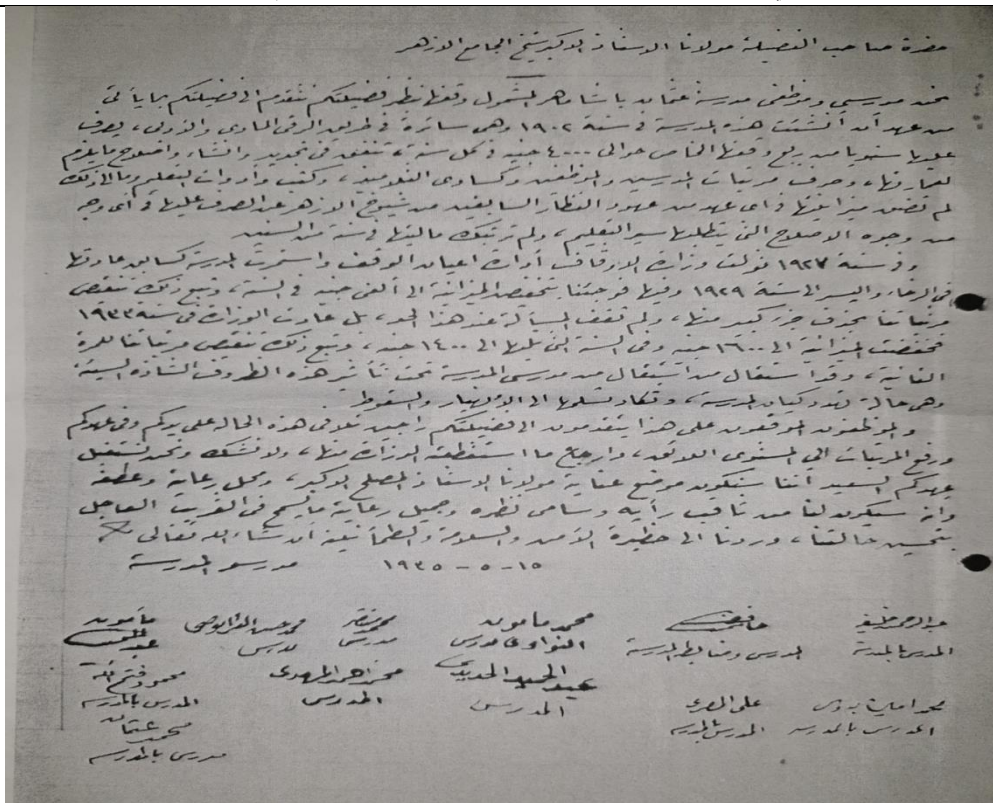 حضرة صاحب الفضيلة مولانا الاستاذ الاكبر شيخ الجامع الازهر
نحن مدرسى وموظفى مدرسة عثمان باشا ماهر المشمول وقفها بنظر فضيلتكم نتقدم الى فضيلتكم بما يأتى
من عهد أن أنشئت هذه المدرسة فى سنة ١٩٠٢ وهى سائرة فى طريق الرقى المادى والأدبى، يصرف
عليها سنويا من ريع وقفها الخاص حوالى ٤٠٠٠ جنيه فى كل سنة، تنفق فى تجديد وانشاء واصلاح ما يلزم
لعمارتها، وصرف مرتبات المدرسين والموظفين وكساوى التلاميذ، وكتب وأدوات التعليم وما الى ذلك
لم تضق ميزانيتها فى اى عهد من عهود النظار السابقين من شيوخ الازهر عن الصرف عليها فى اى وجه
من وجوه الاصلاح التى يتطلبها سير التعليم، ولم ترتبك ماليتها فى سنة من السنين
وفى سنة ١٩٢٧ تولت وزارة الاوقاف ادارة اعيان الوقف واستمرت المدرسة كسابق عادتها
فى الرخاء واليسر الى سنة ١٩٢٩ وفيها فوجئنا بتخفيض الميزانية الى ألفى جنيه فى السنة، وتبع ذلك تنقيص
مرتباتنا بحذف جزء كبير منها، ولم تقف المسألة عند هذا الحد، بل عادت الوزارة فى سنة ١٩٣٣
فخفضت الميزانية الى ١٦٠٠ جنيه وفى السنة التى تليها الى ١٤٠٠ جنيه، وتبع ذلك تنقيص مرتباتنا للمرة
الثانية، وقد استقال من استقال من مدرسى المدرسة تحت تأثير هذه الظروف الشاذة السيئة
وهى حالة تهدد كيان المدرسة، وتكاد تسلمها الى الانهيار والسقوط
والموظفون الموقعون على هذا يتقدمون الى فضيلتكم راجين تلافى هذه الحال على يدكم وفى عهدكم
ورفع المرتبات الى المستوى اللائق، وارجاع ما استقطعته الوزارة منها، ولا نشك ونحن نستقبل
عهدكم السعيد أننا سنكون موضع عناية مولانا الاستاذ المصلح الاكبر، ومحل رعاية وعطفه
وانه سيكون لنا من ثاقب رأيه وسامى نظره وجميل رعايته ما يسمح فى القريب العاجل
بتحسين حالتنا، وردنا الى حظيرة الأمن والسلامة والطمأنينة ان شاء الله تعالى
١٥ - ٥ - ١٩٣٥ مدرسو المدرسة
عبد الرحمن خليفة محمد مأمون محمد محمد حسن مأمون
المدرس بالمدرسة المدرس وضابط المدرسة مدرس مدرس مدرس
عبد الحميد الحديدى محمد زاهر المهدى محمود
محمد على المدرس المدرس المدرس بالمدرسة
المدرس بالمدرسة المدرس بالمدرسة محمد عثمان
مدرس بالمدرسة